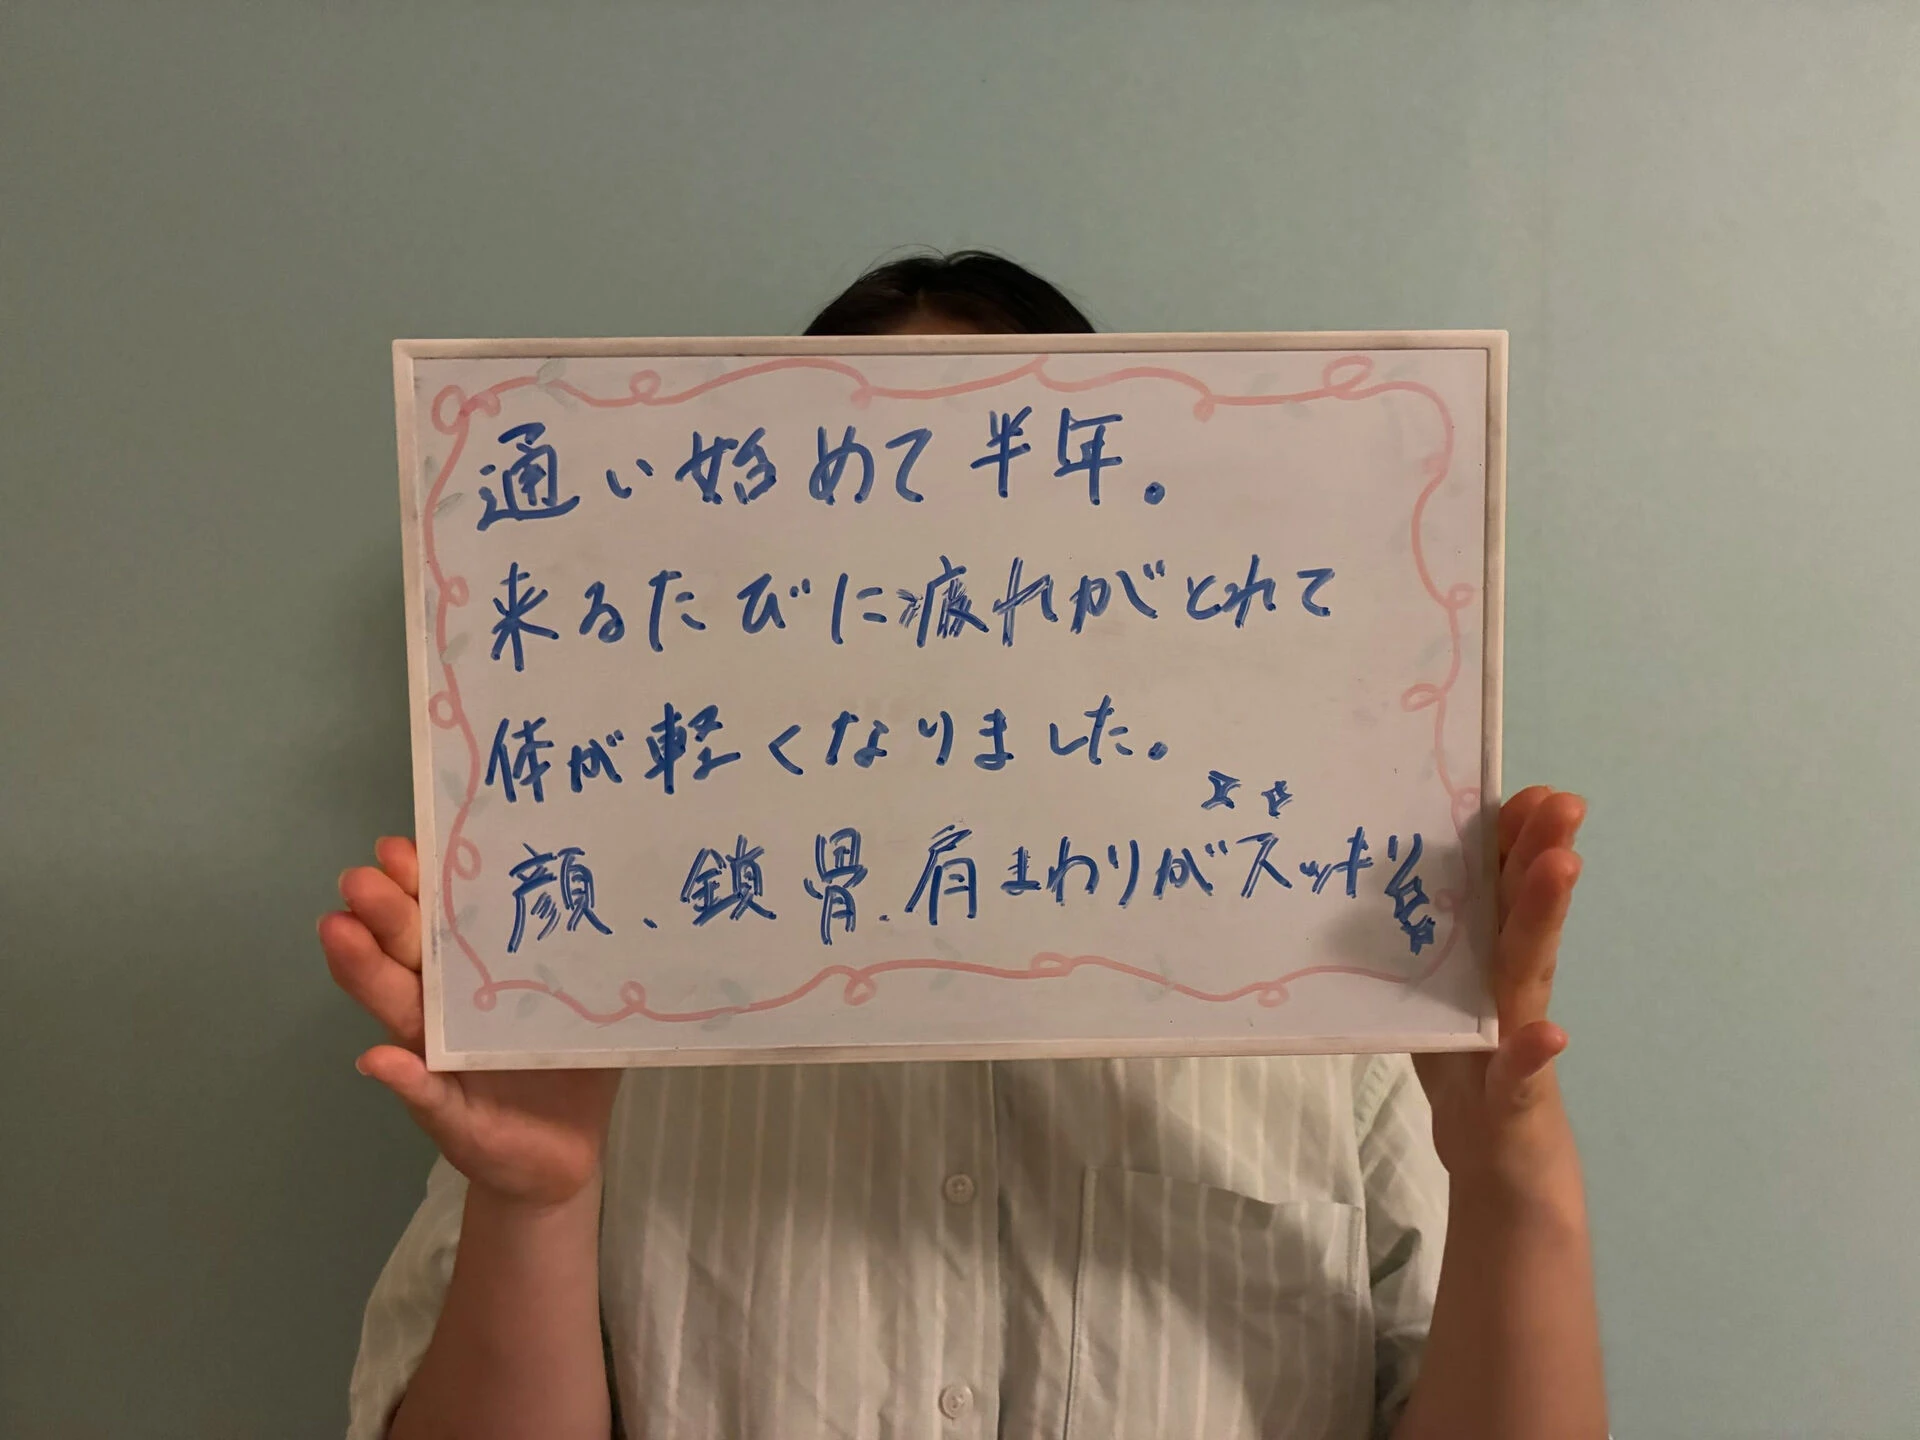 通い始めて半年。
来るたびに疲れがとれて
体が軽くなりました。
顔、鎖骨、肩まわりがスッキリ